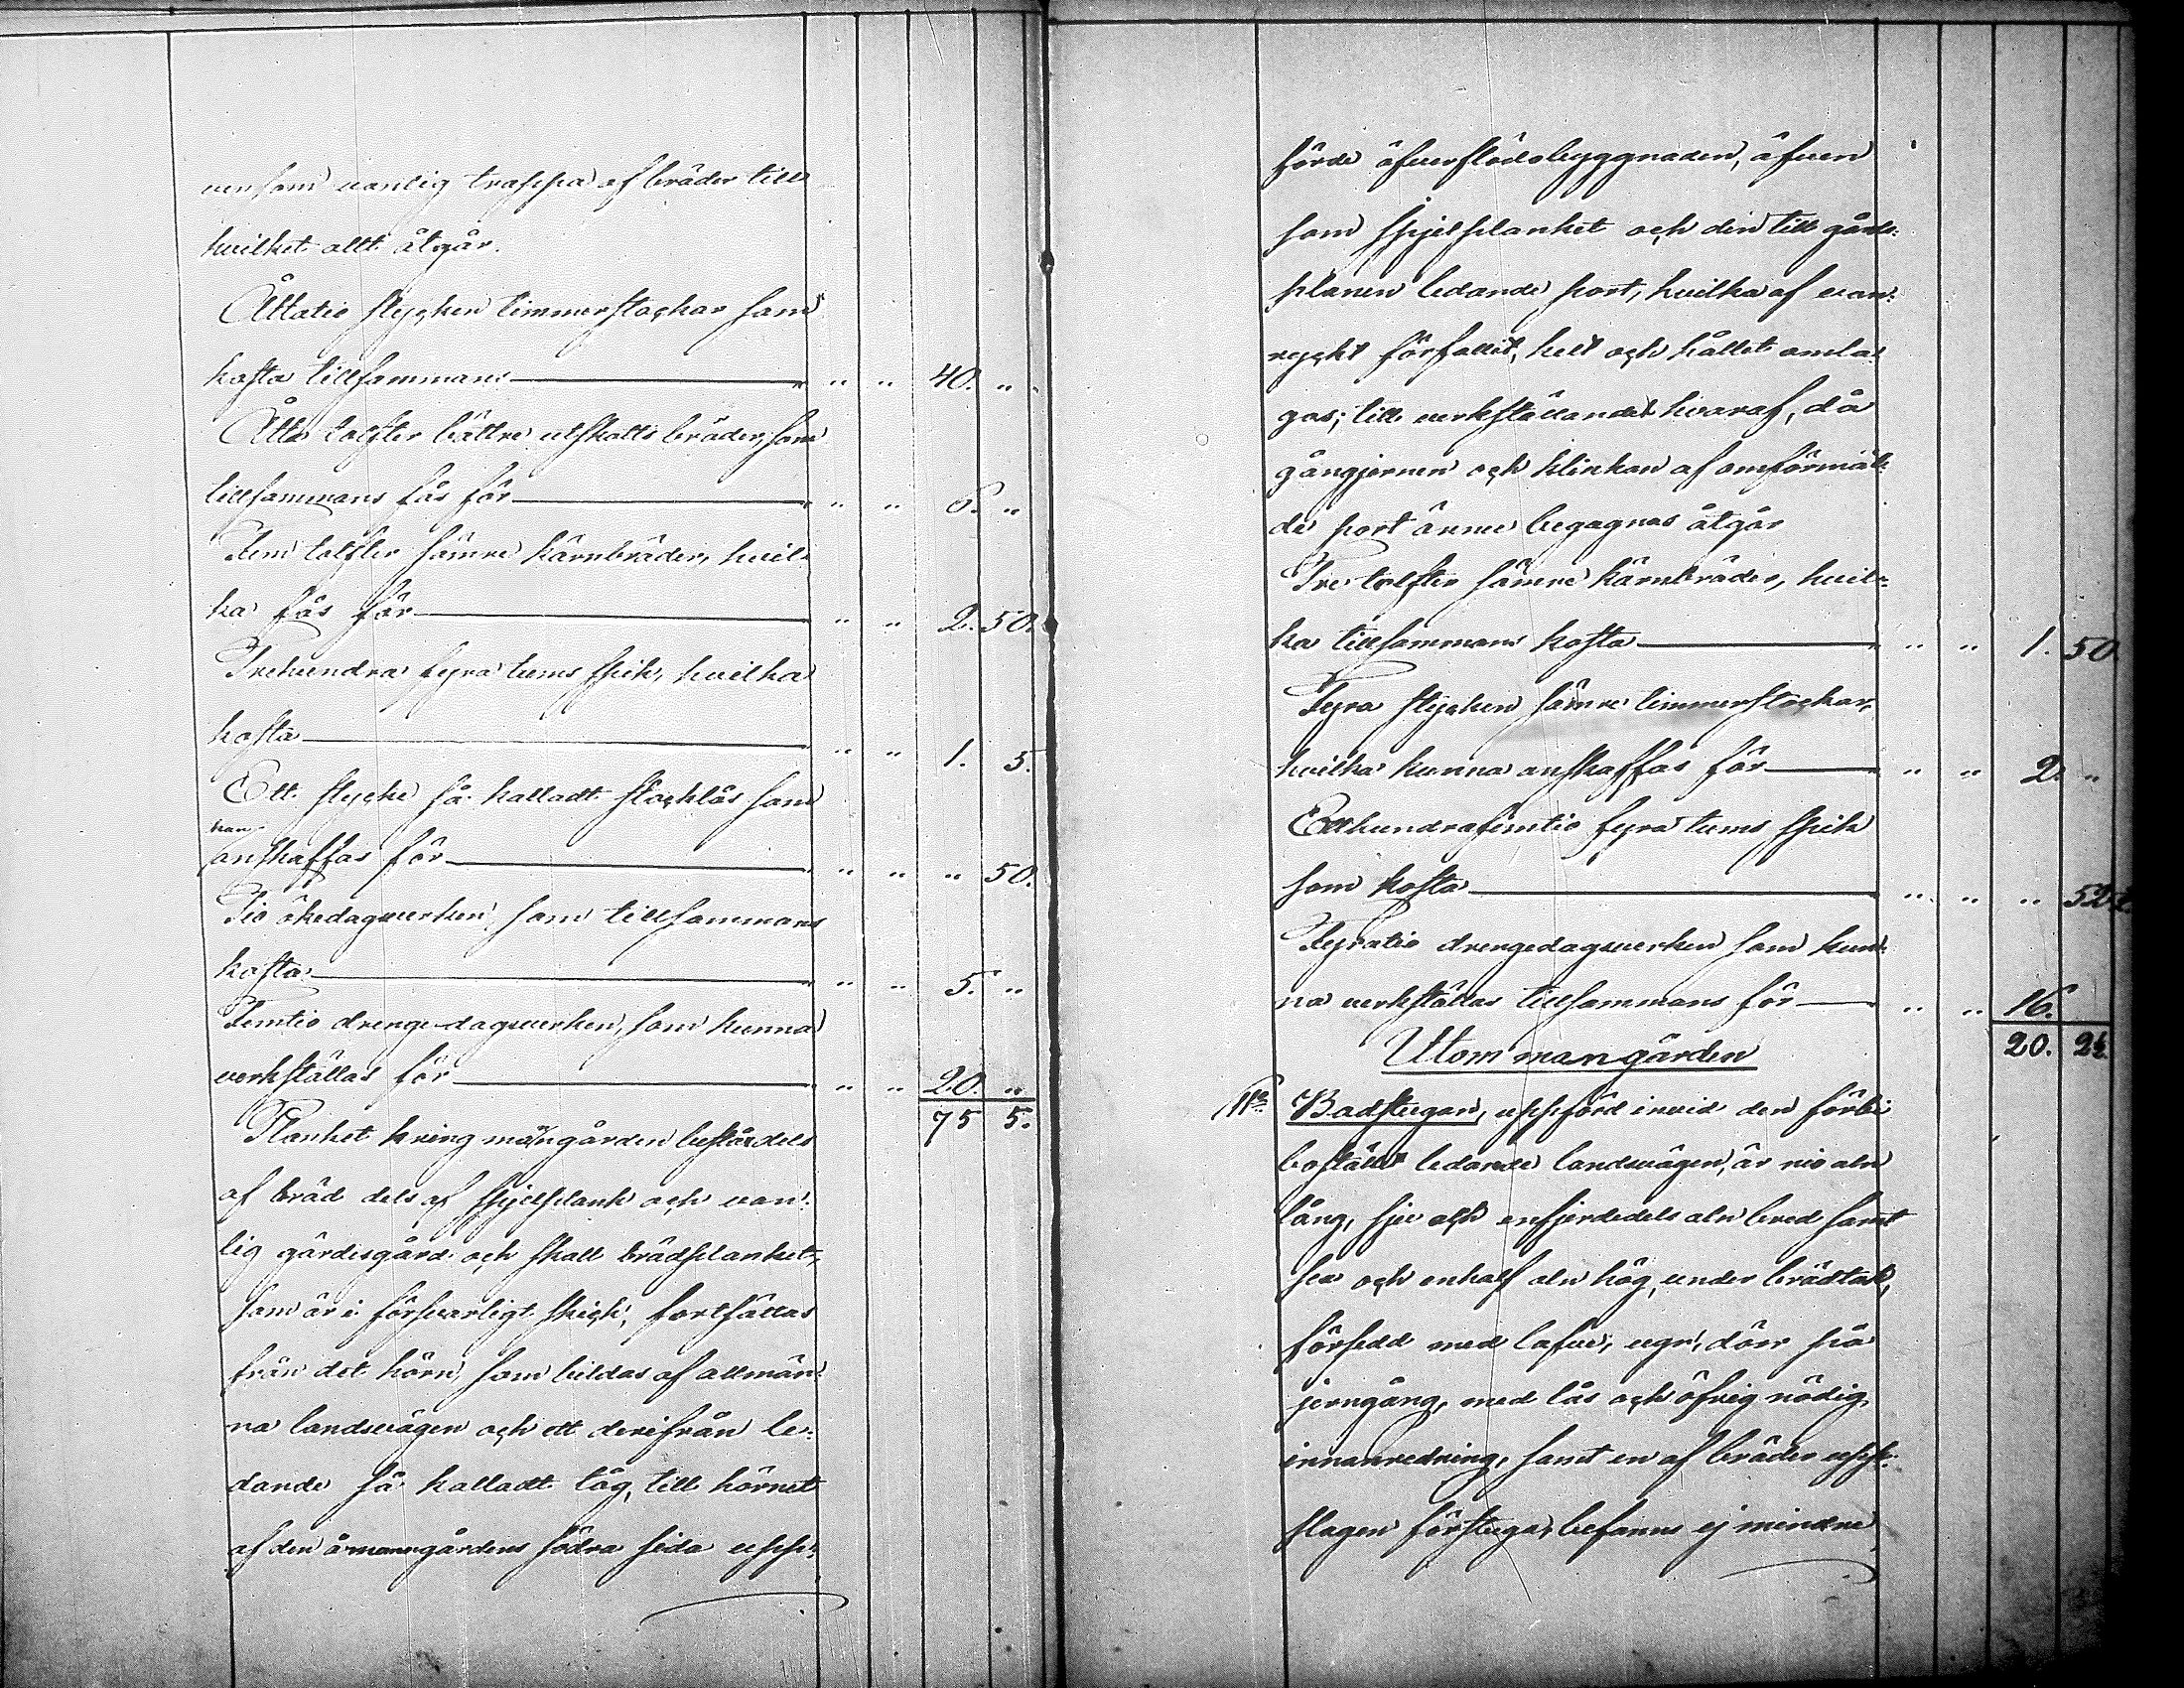 ven som vanlig trappa af bräder till
hvilket allt åtgår.
Åttatio stycken timmerstockar som
kosta tillsammans — " " 40. "
Åtta tolfter bättre utskotts bräder, som
tillsammans fås för — " " 6. "
Fem tolfter sämre kärnbräder, hvil-
ka fås för — " " 2. 50.
Trehundra fyra tums spik, hvilka
kosta — " " 1. 5.
Ett stycke så kalladt stocklås som
kan
anskaffas för — " " " 50.
Tio ökedagsverken som tillsammans
kosta — " " 5. "
Femtio drengedagsverken, som kunna
verkställas för — " " 20. "
75 5.
Planket kring mangården består dels
af bräd dels af spjelplank och van-
lig gärdesgård och skall brädplanket,
som är i försvarligt skick, fortsättas
från det hörn, som bildas af allmän-
na landsvägen och ett derifrån le-
dande så kalladt tåg, till hörnet
af den å mangårdens södra sida upp-
förde öfverflödsbyggnaden, äfven
som spjelplanket och den till gårds-
planen ledande port, hvilka af van-
ryckt förfallit, helt och hållet omla-
gas; till verkställandet hvaraf, då
gångjernen och klinkan af omförmäl-
de port ännu begagnas åtgår
Tre tolfter sämre kärnbräder, hvil-
ka tillsammans kosta — " " 1. 50.
Fyra stycken sämre timmerstockar,
hvilka kunna anskaffas för — " " 2. "
Etthundrafemtio fyra tums spik
som kosta — " " " 52½.
Fyratio drengedagsverken som kun-
na verkställas tillsammans för — " " 16.
20. 2½.
Utom mangården
11o Badstugan, uppförd invid den förbi
bostället ledande landsvägen, är nio aln
lång, sju och enfjerdedels aln bred samt
fem och enhalf aln hög, under brädtak,
försedd med lafve, ugn, dörr på
jerngång, med lås och öfrig nödig
innanredning, samt en af bräder upp-
slagen förstuga, befanns ej mindre